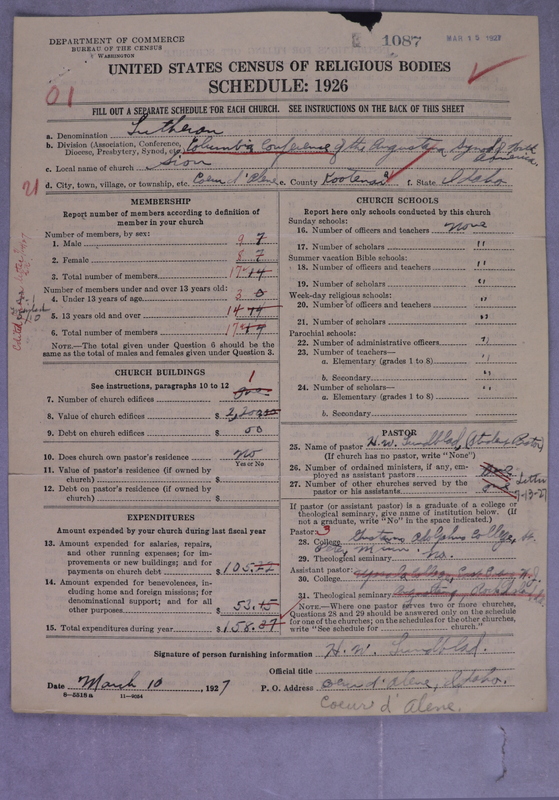 DEPARTMENT OF COMMERCE
BUREAU OF THE CENSUS
WASHINGTON
1087
MAR 15 1927
UNITED STATES CENSUS OF RELIGIOUS BODIES
SCHEDULE: 1926
01
FILL OUT A SEPARATE SCHEDULE FOR EACH CHURCH. SEE INSTRUCTIONS ON THE BACK OF THIS SHEET
a. Denomination Lutheran
b. Division (Association, Conference, Diocese, Presbytery, Synod, etc.) Columbia Conference of the Augustana Synod of North America
c. Local name of church Sion
21
d. City, town, village, or township, etc. Coeur d'Alene e. County Kootenai f. State Idaho
MEMBERSHIP
Report number of members according to definition of
member in your church
Number of members, by sex:
1. Male 9 7
2. Female 8 7
3. Total number of members 17 14
Number of members under and over 13 years old:
4. Under 13 years of age 3 0
5. 13 years old and over 14 14
6. Total number of members 17 14
NOTE.—The total given under Question 6 should be the
same as the total of males and females given under Question 3.
CHURCH BUILDINGS
See instructions, paragraphs 10 to 12
7. Number of church edifices 1
8. Value of church edifices $ 2,200.00
9. Debt on church edifices $ 00
10. Does church own pastor's residence? No
Yes or No
11. Value of pastor's residence (if owned by
church) $
12. Debt on pastor's residence (if owned by
church) $
EXPENDITURES
Amount expended by your church during last fiscal year
13. Amount expended for salaries, repairs,
and other running expenses; for im-
provements or new buildings; and for
payments on church debt $ 105.22
14. Amount expended for benevolences, in-
cluding home and foreign missions; for
denominational support; and for all
other purposes $ 53.15
15. Total expenditures during year $ 158.37
CHURCH SCHOOLS
Report here only schools conducted by this church
Sunday schools:
16. Number of officers and teachers None
17. Number of scholars "
Summer vacation Bible schools:
18. Number of officers and teachers "
19. Number of scholars "
Week-day religious schools:
20. Number of officers and teachers "
21. Number of scholars "
Parochial schools:
22. Number of administrative officers "
23. Number of teachers—
a. Elementary (grades 1 to 8) "
b. Secondary "
24. Number of scholars—
a. Elementary (grades 1 to 8) "
b. Secondary
PASTOR
25. Name of pastor H. W. Lundblad, (Student Pastor)
(If church has no pastor, write "None")
26. Number of ordained ministers, if any, em-
ployed as assistant pastors
27. Number of other churches served by the
pastor or his assistants
Letter
7-13-27
If pastor (or assistant pastor) is a graduate of a college or
theological seminary, give name of institution below. (If
not a graduate, write "No" in the space indicated.)
Pastor:
28. College Gustavus Adolphus College, St. Peter, Minn.
29. Theological seminary No.
Assistant pastor:
30. College
31. Theological seminary
NOTE.—Where one pastor serves two or more churches,
Questions 28 and 29 should be answered only on the schedule
for one of the churches; on the schedules for the other churches,
write "See schedule for church."
Signature of person furnishing information H. W. Lundblad.
Official title
Date March 10, 1927 P. O. Address Coeur d'Alene, Idaho.
6—5518 a 11—9034
Coeur d'Alene.